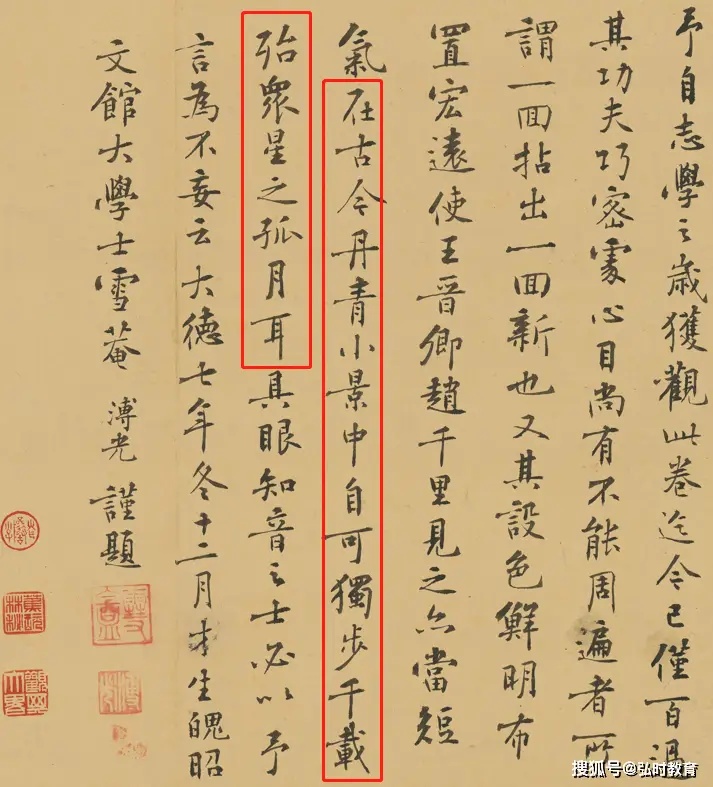 予自志學之歲獲觀此卷迄今已僅百過
其功夫巧密處心目尚有不能周遍者所
謂一回拈出一回新也又其設色鮮明布
置宏遠使王晉卿趙千里見之亦當短
氣在古今丹青小景中自可獨步千載
殆衆星之孤月耳具眼知音之士必以予
言為不妄云大德七年冬十二月才生魄昭
文館大學士雪菴溥光謹題
搜狐号@弘时教育